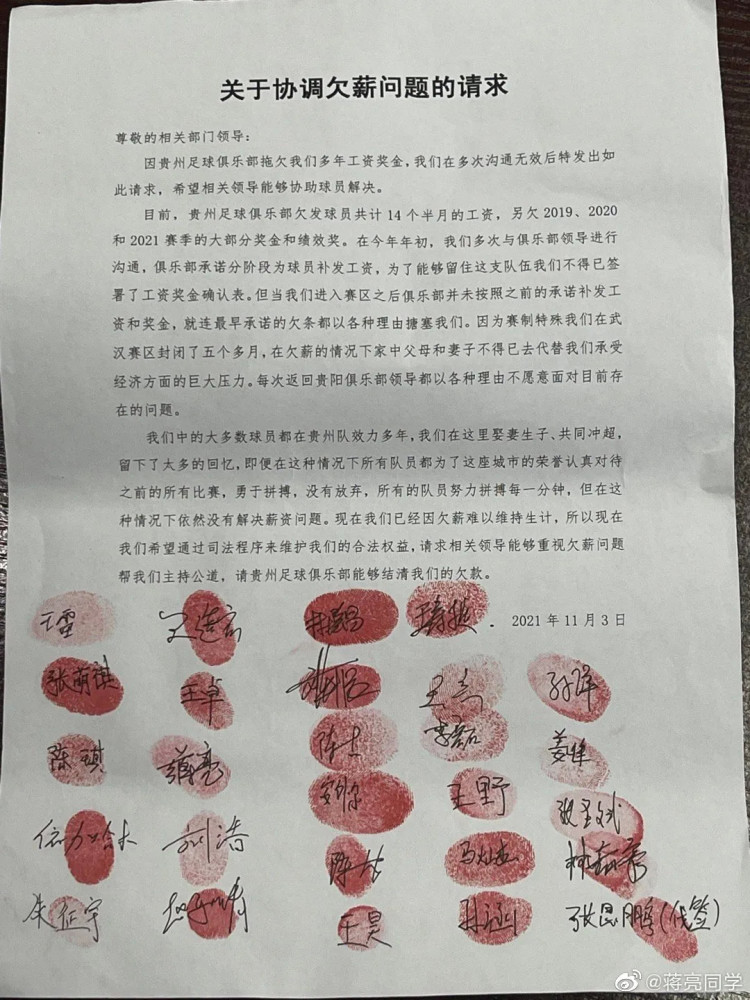 关于协调欠薪问题的请求
尊敬的相关部门领导：
因贵州足球俱乐部拖欠我们多年工资奖金，我们在多次沟通无效后特发出如
此请求，希望相关领导能够协助球员解决。
目前，贵州足球俱乐部欠发球员共计 14 个半月的工资，另欠 2019、2020
和 2021 赛季的大部分奖金和绩效奖。在今年年初，我们多次与俱乐部领导进行
沟通，俱乐部承诺分阶段为球员补发工资，为了能够留住这支队伍我们不得已签
署了工资奖金确认表。但当我们进入赛区之后俱乐部并未按照之前的承诺补发工
资和奖金，就连最早承诺的欠条都以各种理由搪塞我们。因为赛制特殊我们在武
汉赛区封闭了五个多月，在欠薪的情况下家中父母和妻子不得已去代替我们承受
经济方面的巨大压力。每次返回贵阳俱乐部领导都以各种理由不愿意面对目前存
在的问题。
我们中的大多数球员都在贵州队效力多年，我们在这里娶妻生子、共同冲超，
留下了太多的回忆，即便在这种情况下所有队员都为了这座城市的荣誉认真对待
之前的所有比赛，勇于拼搏，没有放弃，所有的队员努力拼搏每一分钟，但在这
种情况下依然没有解决薪资问题。现在我们已经因欠薪难以维持生计，所以现在
我们希望通过司法程序来维护我们的合法权益，请求相关领导能够重视欠薪问题
帮我们主持公道，请贵州足球俱乐部能够结清我们的欠款。
2021 年 11 月 3 日
张萌琪 王卓
陈琪 蒋亮 李磊 姜隼
王野
刘涛
朱征宇 王昊 张昆鹏(代签)
@蒋亮同学